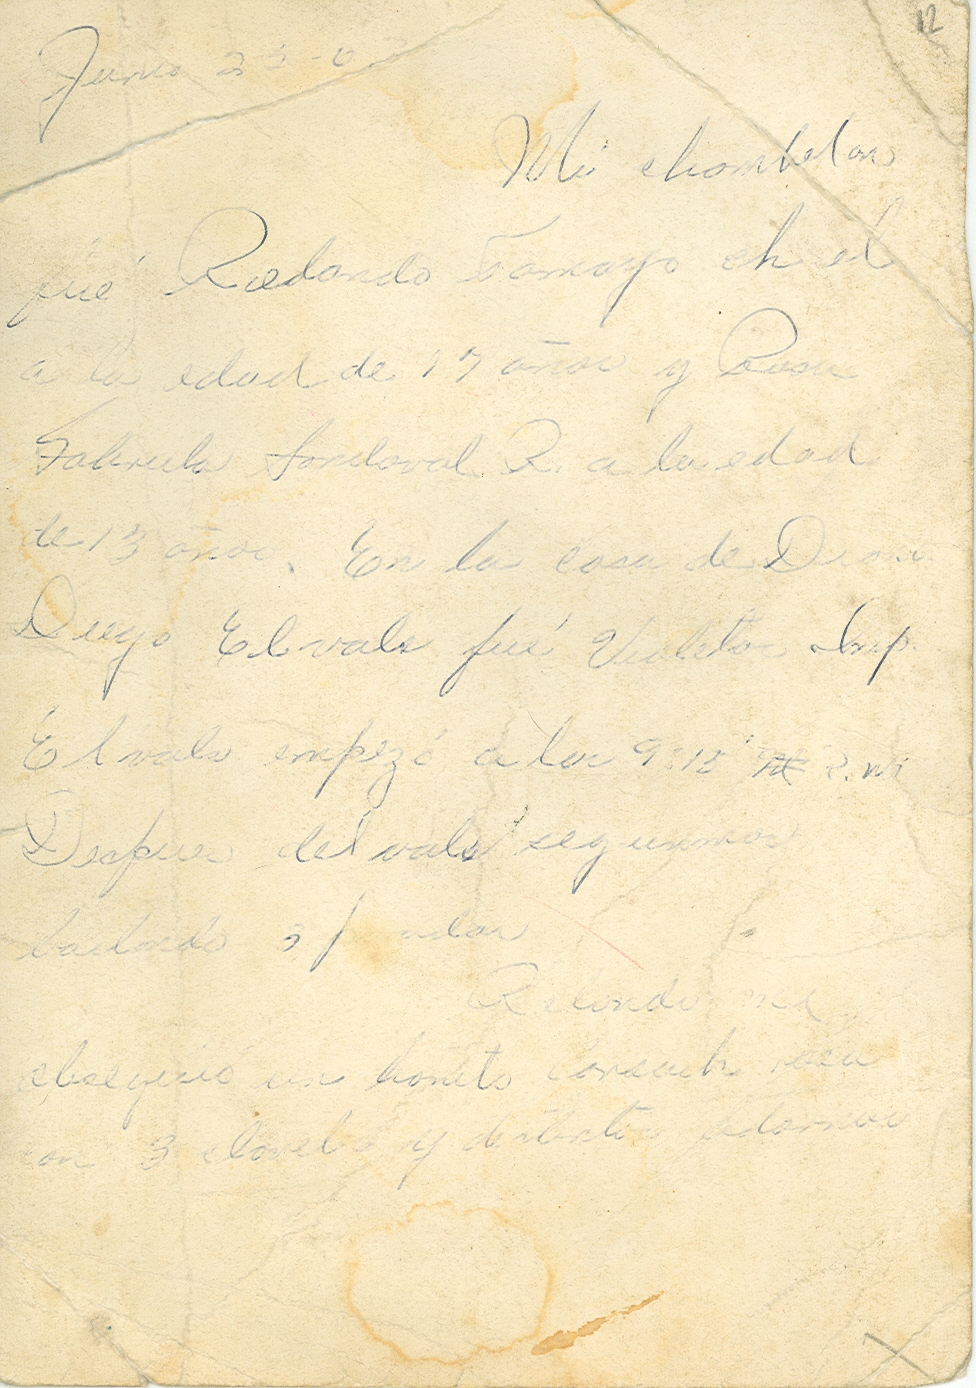 12
Junio 25-6
Mi chambelan
fué Redondo Tamayo ch el
a la edad de 17 años y Rosa
Fabiula Sandoval R. a la edad
de 13 años. En la casa de
Diego El vals fué Violetas Imp.
El vals empezó a las 9:15 P.M
Despues del vals seguimos
bailando
Redondo me
obsequió un bonito corsach rosa
con 3 claveles y distintos adornos